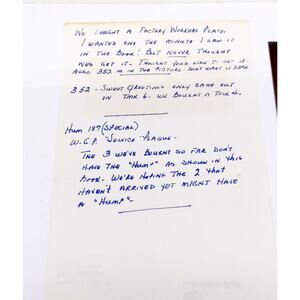 We bought a Factory Workers Plate.
I wanted one the minute I saw it
in the book! But never thought
we'd get it - Thought you'd like to see it
Also 352 is in the picture Don't want it back
352 - Sweet Greetings only came out
in TMK 6 - We bought a TMK 6.
Hum 187 (Special)
W.G.P. "Service Plaque -
The 3 we've bought so far don't
have the "Hump" as shown in this
book - We're hoping the 2 that
haven't arrived yet might have
a "Hump" -